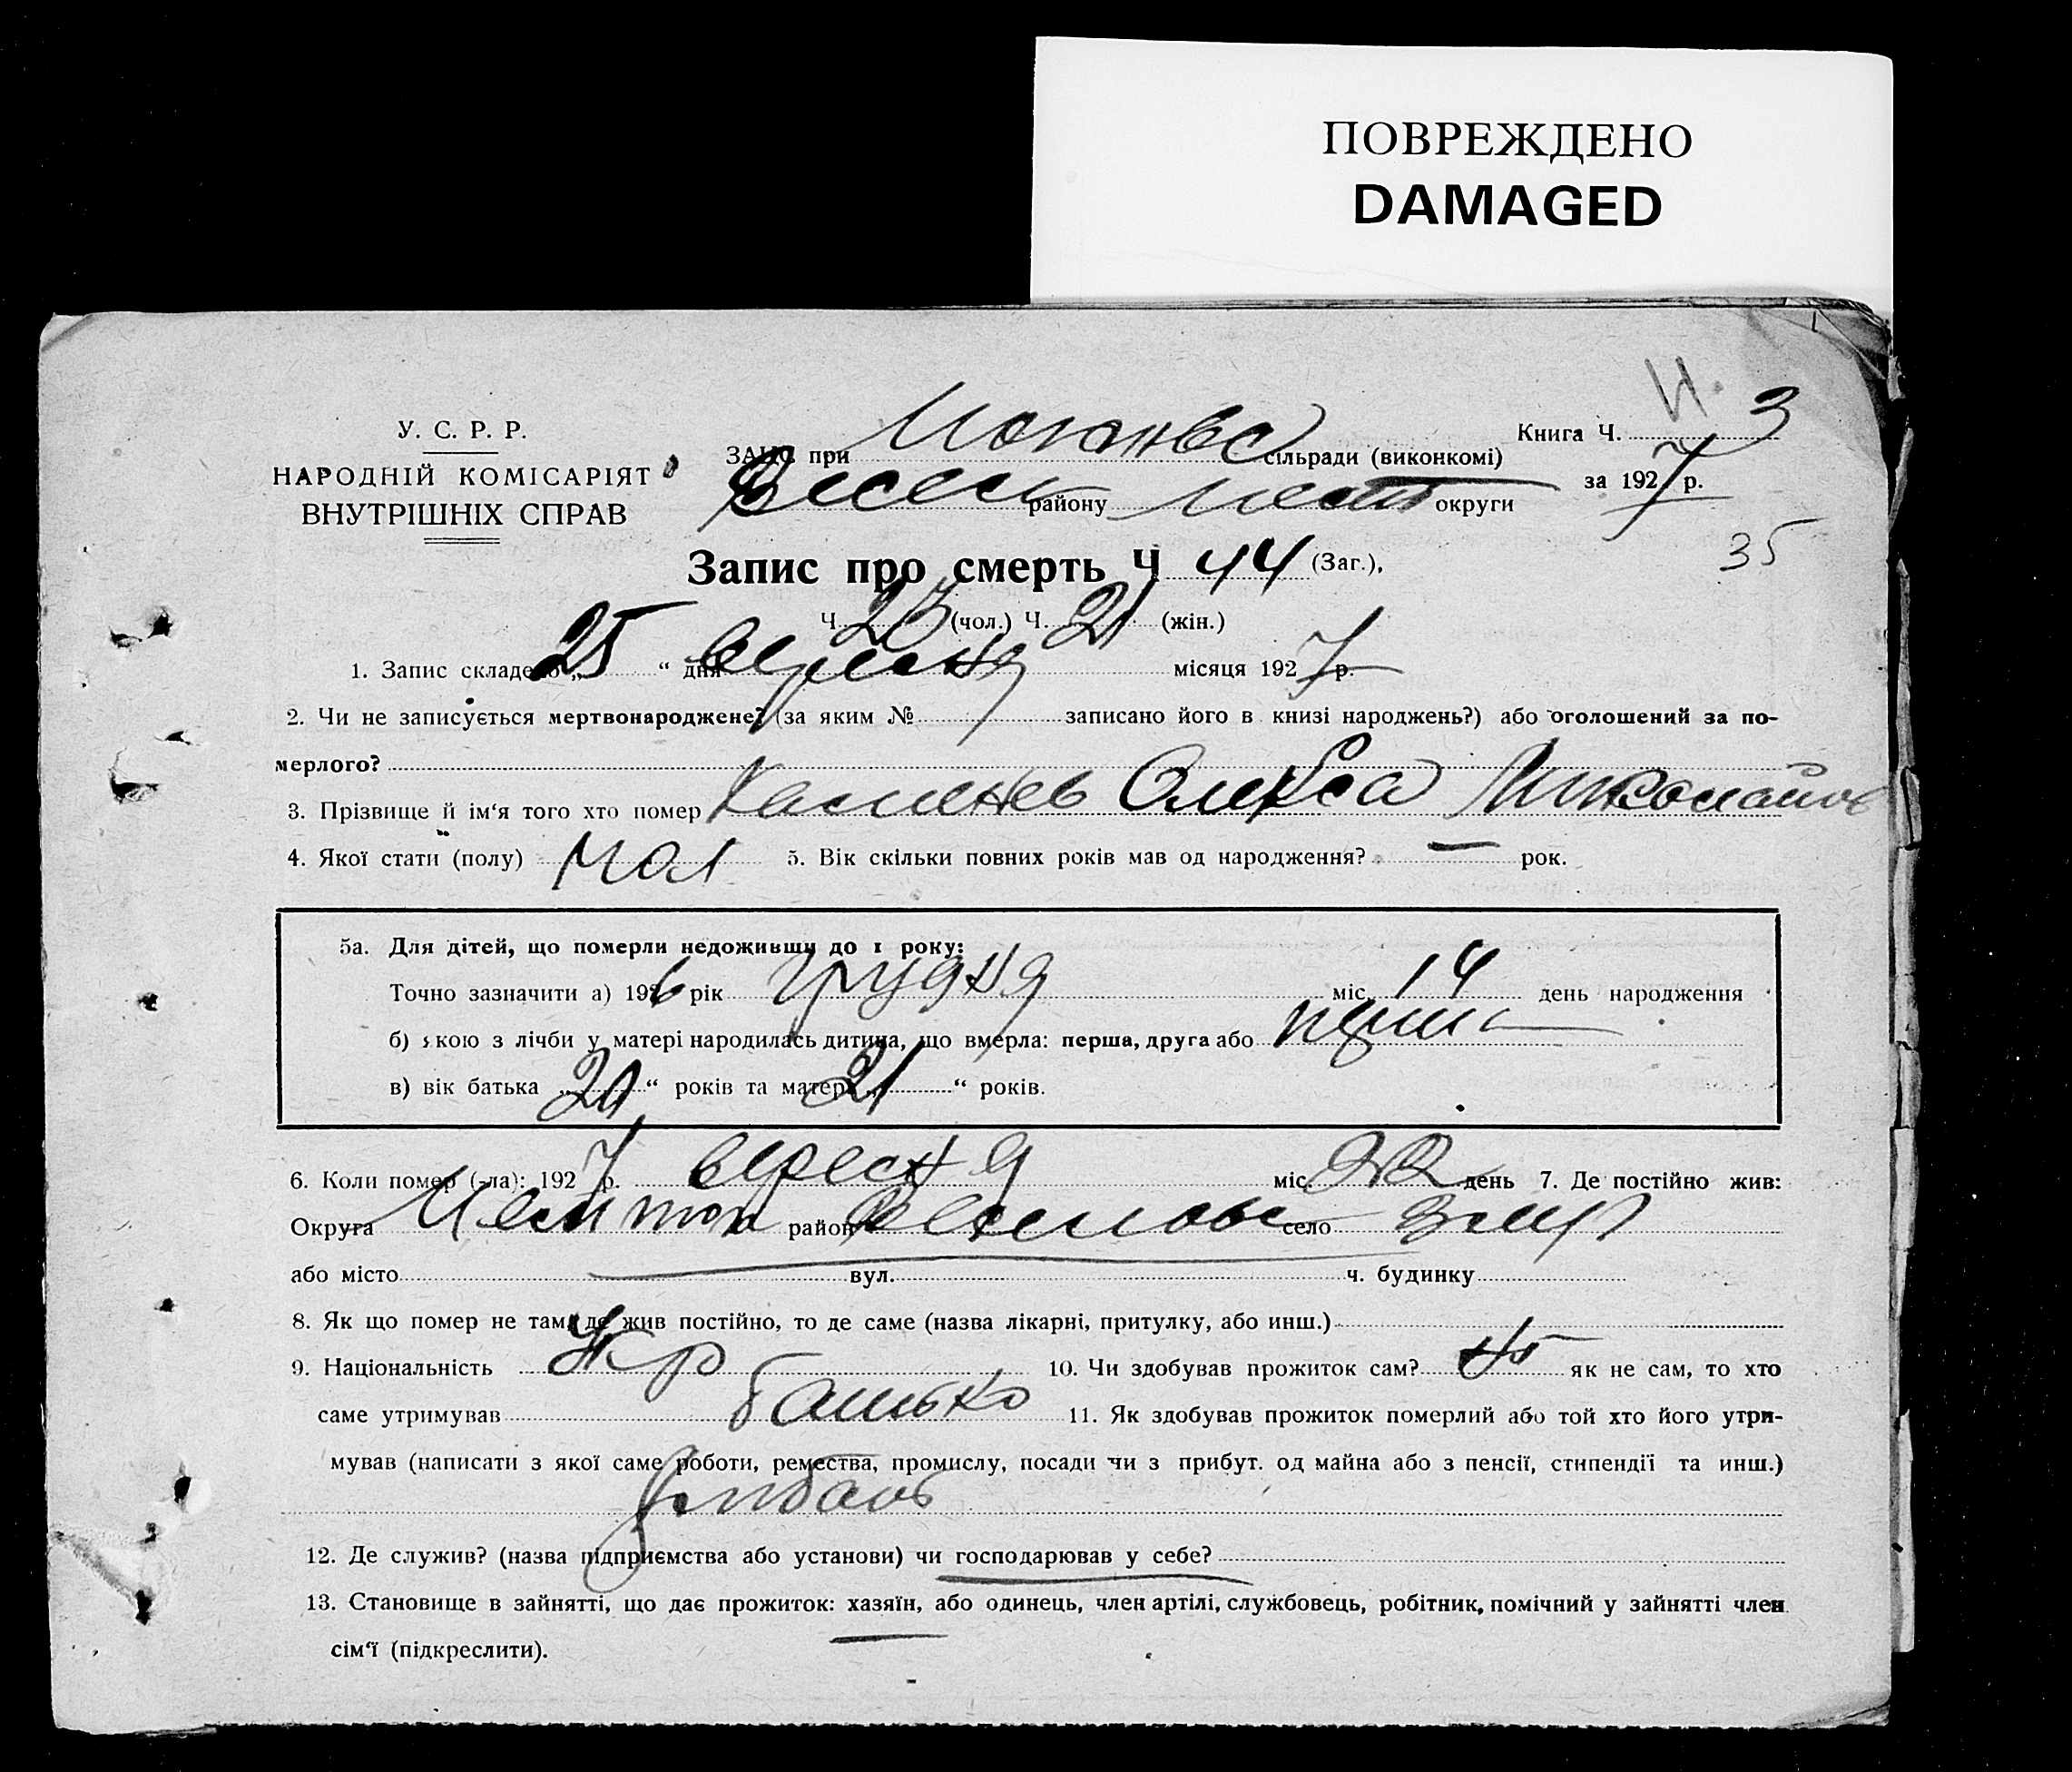 ПОВРЕЖДЕНО
DAMAGED
У. С. Р. Р.
НАРОДНІЙ КОМІСАРІЯТ
ВНУТРІШНІХ СПРАВ
ЗАГС при сільради (виконкомі)
району округи
Книга Ч. 3
за 1927 р.
35
Запис про смерть Ч 44 (Заг.),
Ч. 23 (чол.) Ч. 21 (жін.)
1. Запис складено „25“ дня вересня місяця 1927 р.
2. Чи не записується мертвонароджене? (за яким № записано його в книзі народжень?) або оголошений за по-
мерлого?
3. Прізвище й ім‘я того хто помер Каменев Олекса Миколайов
4. Якої стати (полу) чол 5. Вік скільки повних років мав од народження? — рок.
5а. Для дітей, що померли недоживши до 1 року:
Точно зазначити а) 1926 рік грудня міс. 14 день народження
б) якою з лічби у матері народилась дитина, що вмерла: перша, друга або перша
в) вік батька „20“ років та матері „21“ років.
6. Коли помер (-ла): 1927 р. вересня міс. 22 день 7. Де постійно жив:
Округа район село
або місто вул. ч. будинку
8. Як що помер не там, де жив постійно, то де саме (назва лікарні, притулку, або инш.)
9. Національність Укр 10. Чи здобував прожиток сам? ні як не сам, то хто
саме утримував батько 11. Як здобував прожиток померлий або той хто його утри-
мував (написати з якої саме роботи, ремества, промислу, посади чи з прибут. од майна або з пенсії, стипендії та инш.)
12. Де служив? (назва підприємства або установи) чи господарював у себе?
13. Становище в зайнятті, що дає прожиток: хазяїн, або одинець, член артілі, службовець, робітник, помічний у зайнятті член
сім‘ї (підкреслити).